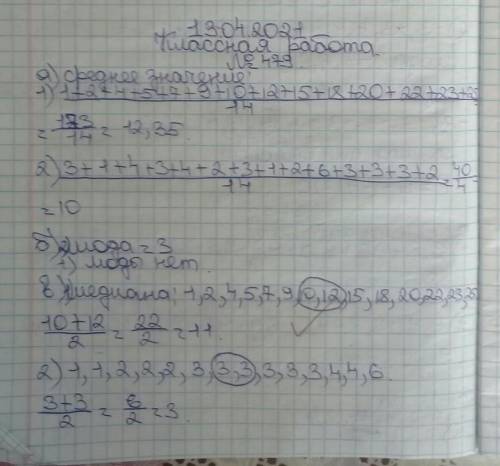 13.04.2021
Классная работа
№ 479
а) среднее значение:
1) 1+2+4+5+7+9+10+12+15+18+20+22+23+25
14
= 173/14 = 12,35
2) 3+1+4+3+4+2+3+1+2+6+3+3+3+2 = 40/4
14
=10
б) 2) мода = 3
1) моды нет.
в) 1) медиана: 1,2,4,5,7,9,10,12,15,18,20,22,23,25
10+12/2 = 22/2 = 11.
2) 1,1,2,2,2,3,3,3,3,3,3,4,4,6.
3+3/2 = 6/2 = 3.